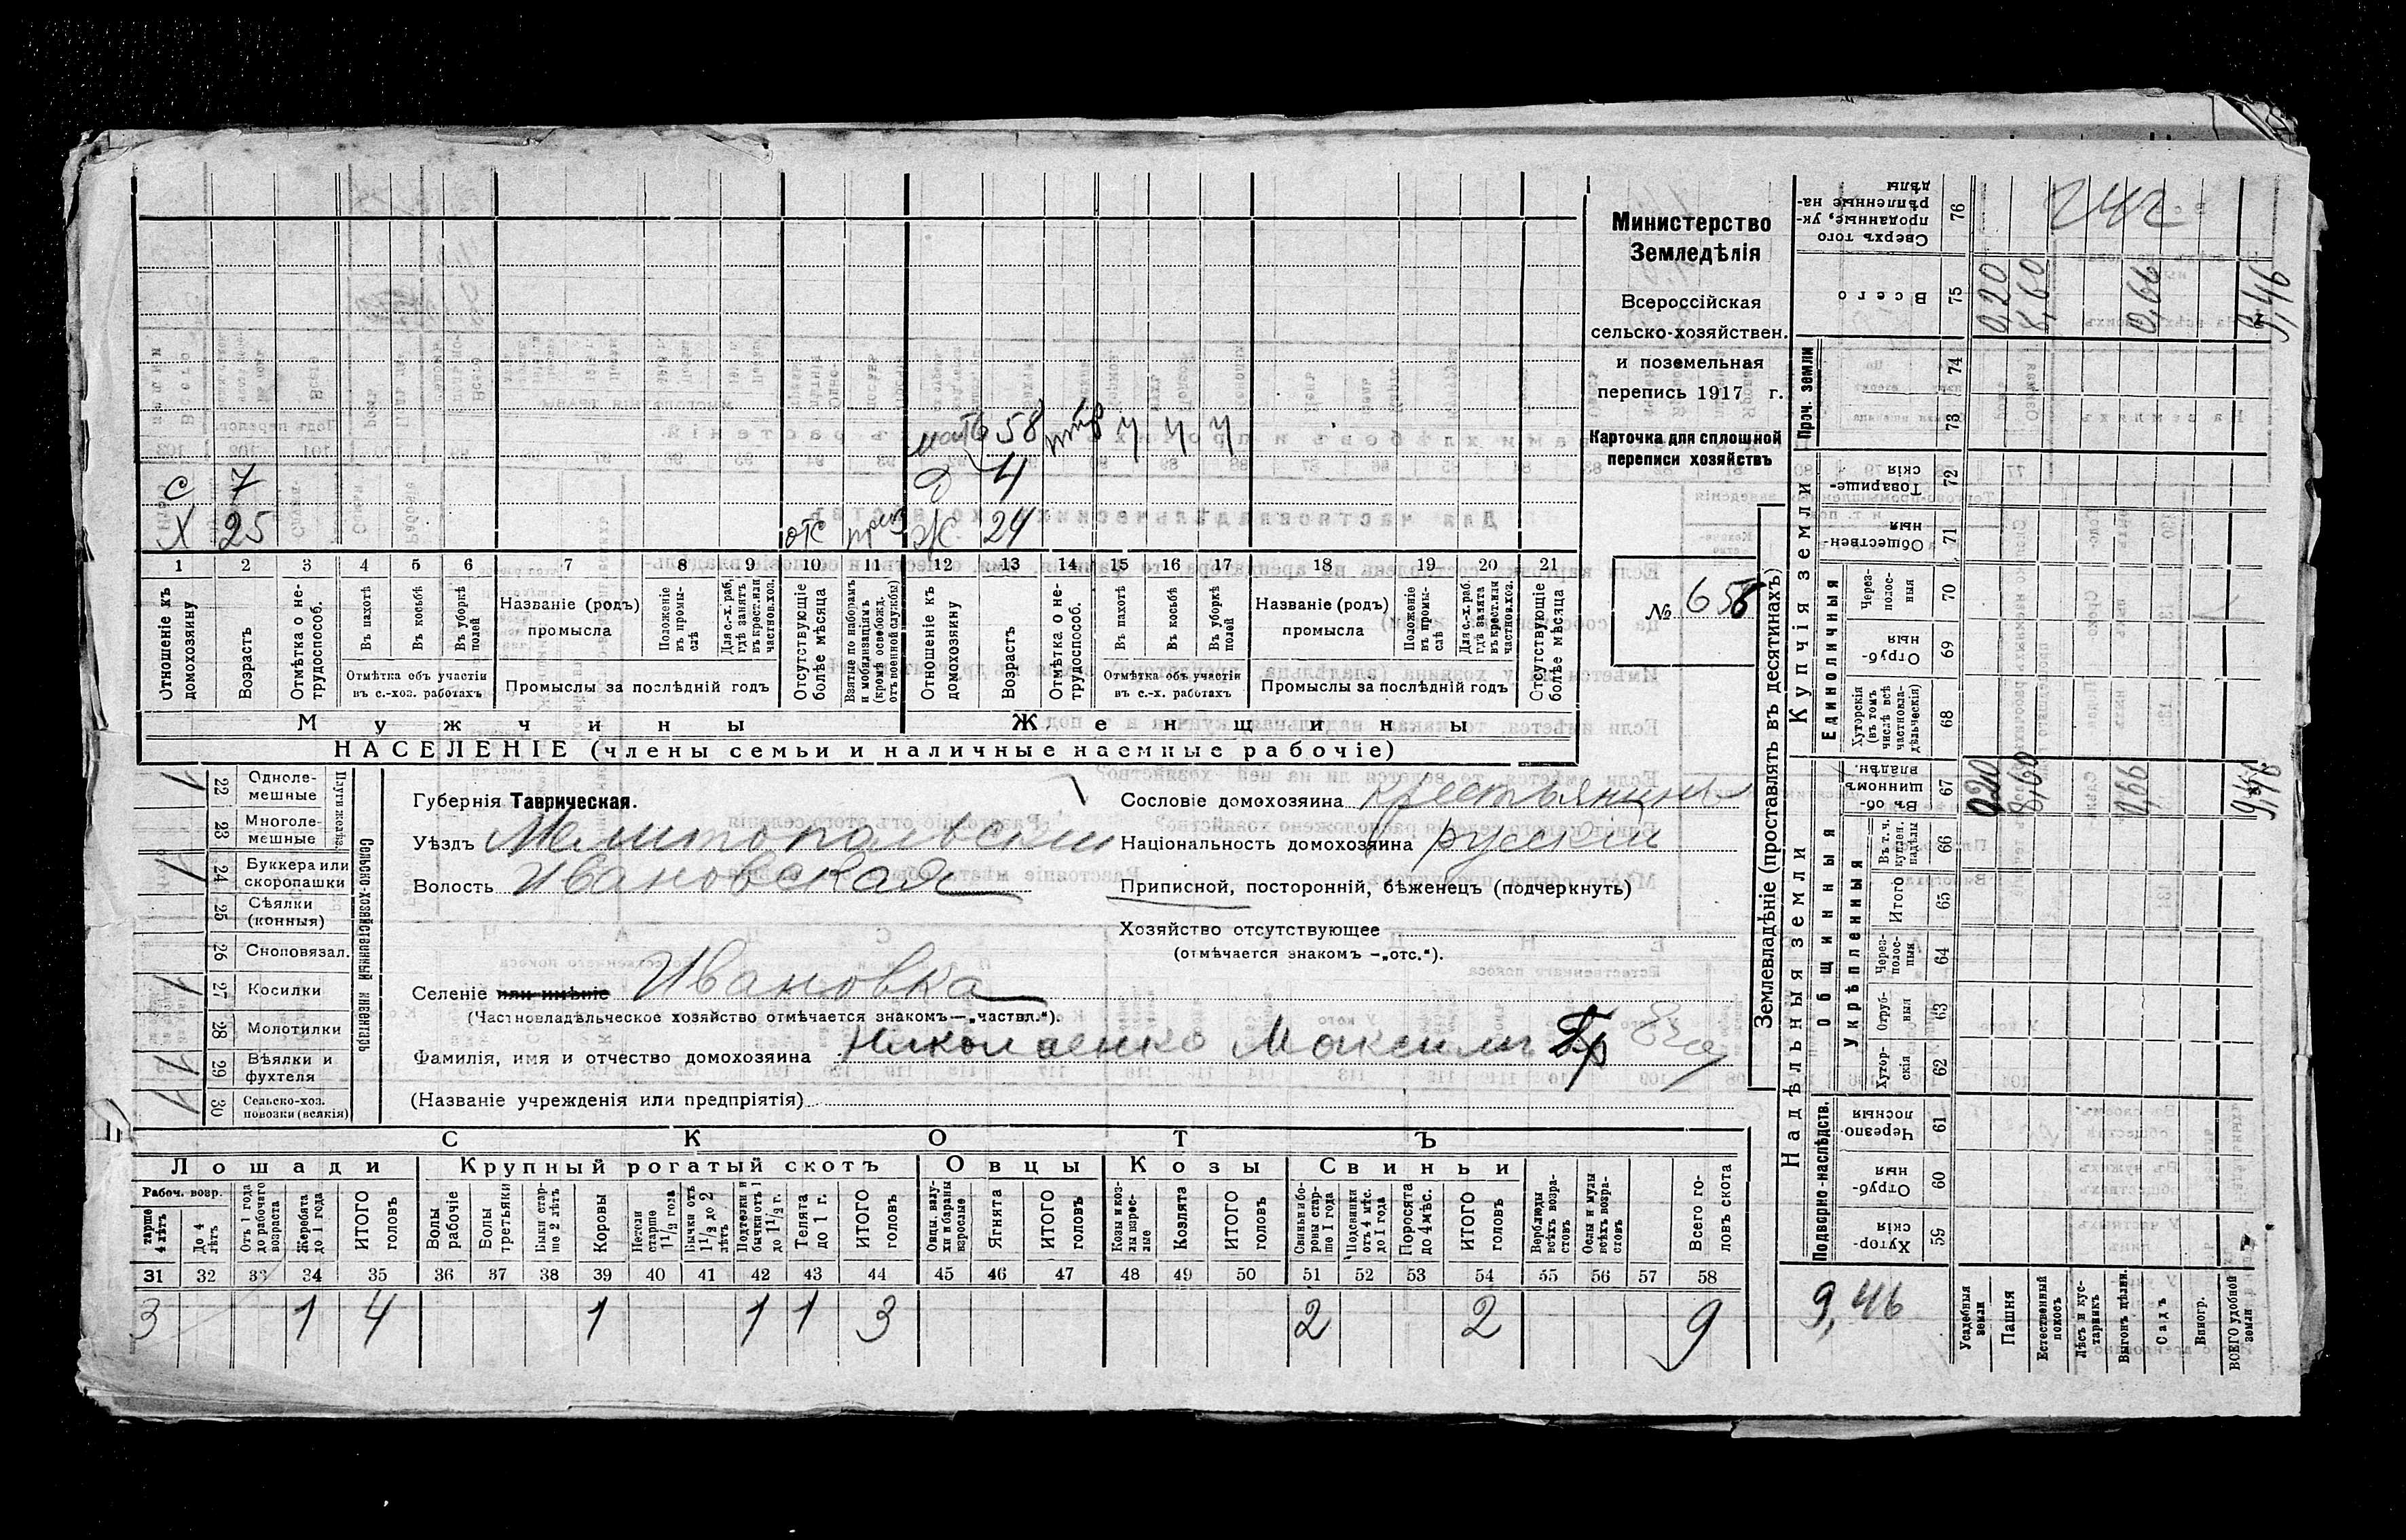 Министерство
Земледѣлія
Всероссійская
сельско-хозяйствен.
и поземельная
перепись 1917 г.
Карточка для сплошной
переписи хозяйствъ
№ 658
мать 58 ч ч ч
с 7 Д 4
Х 25 отс Ж. 24
1 2 3 4 5 6 7 8 9 10 11 12 13 14 15 16 17 18 19 20 21
Отношеніе къ домохозяину
Возрастъ
Отмѣтка о не-трудоспособ.
Въ пахотѣ
Въ косьбѣ
Въ уборкѣ полей
Отмѣтка объ участіи въ с.-хоз. работахъ
Названіе (родъ) промысла
Положеніе въ промы-слѣ
Для с.-х. раб. гдѣ занятъ въ крест. или частнов. хоз.
Промыслы за послѣдній годъ
Отсутствующіе болѣе мѣсяца
Взятые по наборамъ и мобилизаціямъ (кромѣ освобожд. отъ военной службы)
Отношеніе къ домохозяину
Возрастъ
Отмѣтка о не-трудоспособ.
Въ пахотѣ
Въ косьбѣ
Въ уборкѣ полей
Отмѣтка объ участіи въ с.-х. работахъ
Названіе (родъ) промысла
Положеніе въ промы-слѣ
Для с.-х. раб. гдѣ занята въ крест. или частнов. хоз.
Промыслы за послѣдній годъ
Отсутствующіе болѣе мѣсяца
Мужчины Женщины
НАСЕЛЕНІЕ (члены семьи и наличные наемные рабочіе)
Сельско-хозяйственный инвентарь
Плуги желѣз.
22 Одноле-мешные 1
23 Многоле-мешные
24 Буккера или скоропашки 1
25 Сѣялки (конныя)
26 Сноповязал.
27 Косилки 1
28 Молотилки
29 Вѣялки и фухтеля 1
30 Сельско-хоз. повозки (всякія) 1
Губернія Таврическая.
Уѣздъ Мелитопольскій
Волость Ивановская
Селеніе или имѣніе Ивановка
(Частновладѣльческое хозяйство отмѣчается знакомъ—„частвл.“).
Фамилія, имя и отчество домохозяина Николаенко Максимъ Гр
(Названіе учрежденія или предпріятія)
Сословіе домохозяина крестьянинъ
Національность домохозяина русскій
Приписной, посторонній, бѣженецъ (подчеркнуть)
Хозяйство отсутствующее
(отмѣчается знакомъ —„отс.“).
СКОТЪ
Лошади Крупный рогатый скотъ Овцы Козы Свиньи
Рабоч. возр.
тарше 4 лѣтъ
До 4 лѣтъ
Отъ 1 года до рабочаго возраста
Жеребята до 1 года
ИТОГО головъ
Волы рабочіе
Волы третьяки
Быки стар-ше 2 лѣтъ
Коровы
Нетели старше 1½ года
Бычки отъ 1½ до 2 лѣтъ
Подтелки и бычки отъ 1 до 1½ г.
Телята до 1 г.
ИТОГО головъ
Овцы, валу-хи и бараны взрослые
Ягнята
ИТОГО головъ
Козы и коз-лы взрос-лые
Козлята
ИТОГО головъ
Свиньи и бо-ровы стар-ше 1 года
Подсвинки отъ 4 мѣс. до 1 года
Поросята до 4 мѣс.
ИТОГО головъ
Верблюды всѣхъ возра-стовъ
Ослы и мулы всѣхъ возра-стовъ
Всего го-ловъ скота
31 32 33 34 35 36 37 38 39 40 41 42 43 44 45 46 47 48 49 50 51 52 53 54 55 56 57 58
3 1 4 1 1 1 3 2 2 9
Землевладѣніе (проставлять въ десятинахъ)
Надѣльныя земли Купчія земли Проч. земли
Подворно-наслѣдств. Общинныя Единоличныя
Укрѣпленныя
Хутор-скія 59
Отруб-ныя 60
Черезпо-лосныя 61
Хутор-скія 62
Отруб-ныя 63
Через-полос-ныя 64
Итого 65
Въ т. ч. куплен. надѣлы 66
Въ об-щинномъ владѣн. 67
Хуторскія (въ томъ числѣ всѣ частновла-дѣльческія) 68
Отруб-ныя 69
Через-полос-ныя 70
Обществен-ныя 71
Товарище-скія 72
73
74
Всего 75
Сверхъ того проданные, ук-рѣпленные на-дѣлы 76
Усадебныя земли 0,20 0,20
Пашня 8,60 8,60
Естественный покосъ
Лѣсъ и кус-тарникъ
Выгонъ цѣлин. 0,66 0,66
Садъ
Виногр.
ВСЕГО удобной земли 9,46 9,46
9,46
242